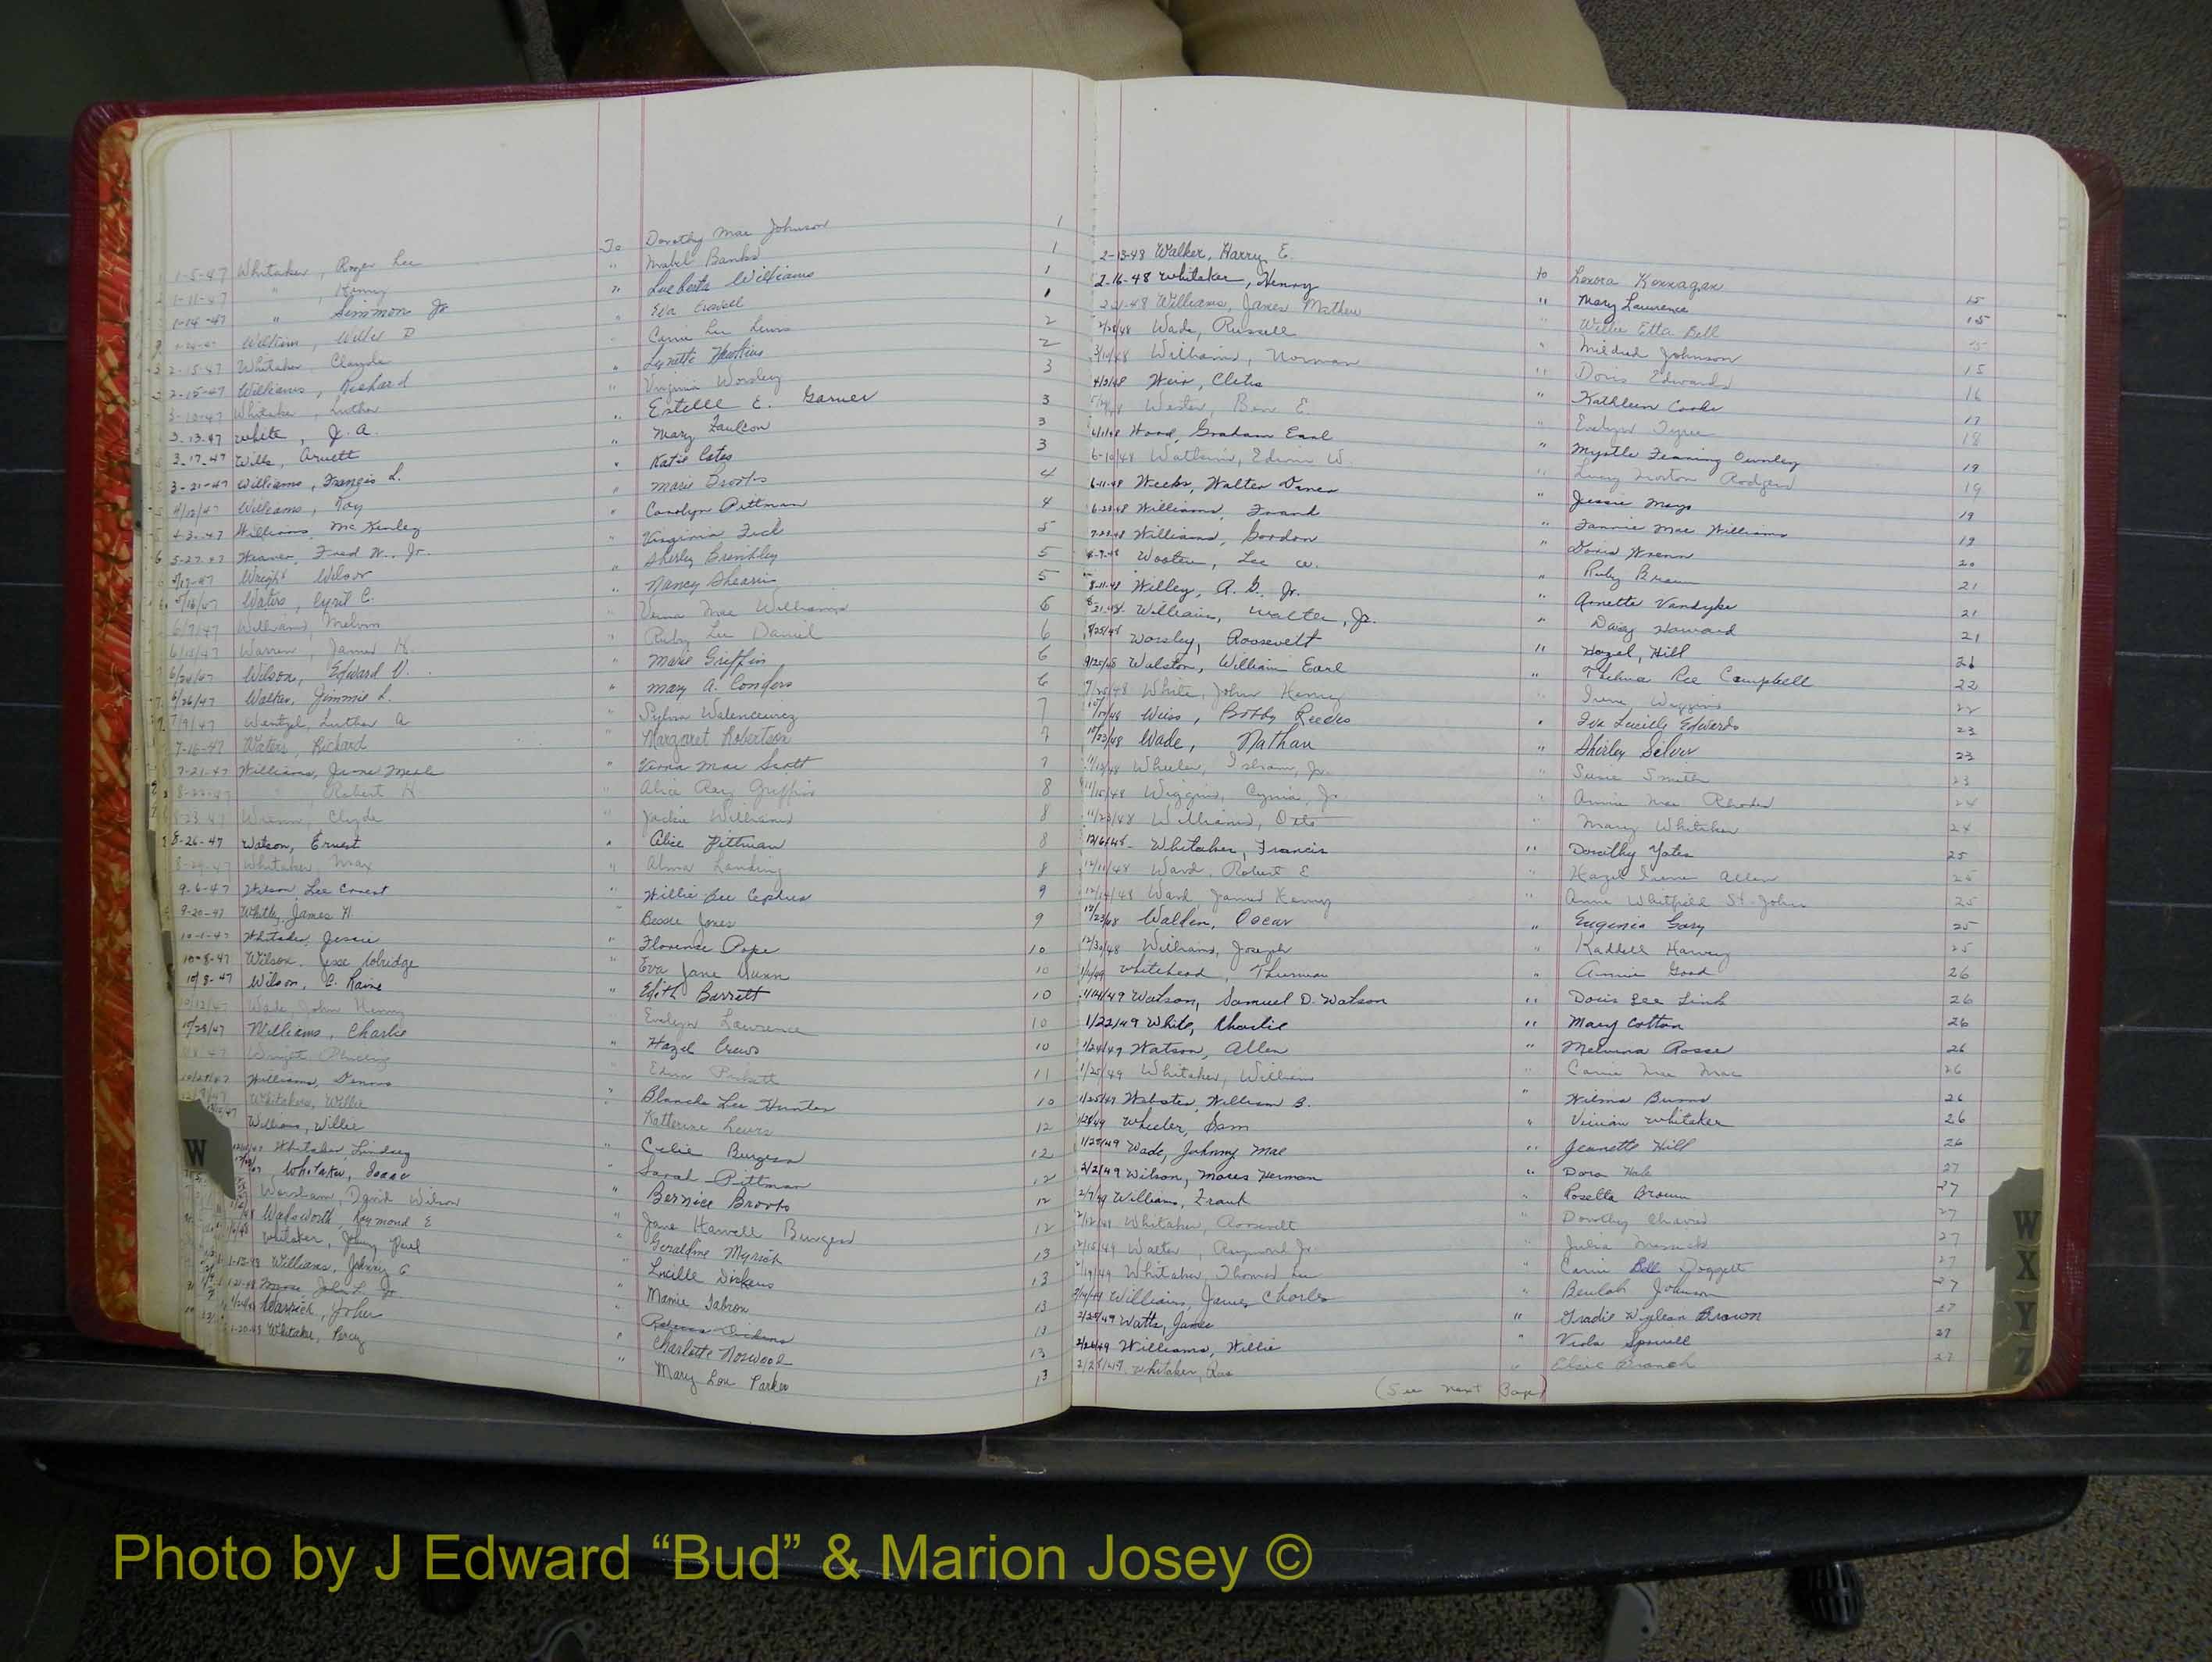 1-5-47 Whitaker, Roger Lee To Dorothy Mae Johnson 1
1-11-47 " , Henry " Mabel Banks 1
1-14-47 " Simmon Jr " Lue Berta Williams 1
William, Willie D " Eva
2-15-47 Whitaker, Clayde Carrie Lee Lewis 2
2-15-47 Williams, Richard " Lynette Hawkins 2
3-10-47 Whitaker, Luther " Virginia Worsley 3
3-13-47 White, J. A. " Estelle E. Garner 3
3-17-47 Wills, Arnett " Mary Faulcon 3
3-21-47 Williams, Francis L. " Katie Cates 3
4/12/47 Williams, Roy " Marie Brooks 4
Williams, McKinley " Carolyn Pittman 4
5-27-47 Weaver, Fred W., Jr. " Virginia 5
Wright Wilson " Shirley Brinkley 5
5/16/47 Waters, Cyril C. " Nancy Shearin 5
6/7/47 Williams, Melvin Verna Mae Williams 6
Warren, James H. " Ruby Lee Daniel 6
Wilson, Edward V. " Marie Griffin 6
6/26/47 Walker, Jimmie L. " Mary A. Conders 6
7/9/47 Wentzel, Luther A " Sylvia Walencewicz 7
7-16-47 Waters, Richard " Margaret Robertson 7
7-21-47 Williams, " Verna Mae Scott 7
" , Robert H. " Alice Ray Griffin 8
8-23-47 Wrenn, Clyde " Jackie Williams 8
8-26-47 Watson, Ernest " Alice Pittman 8
8-29-47 Whitaker, Max " Alma Landing 8
9-6-47 Wilson, Lee Ernest " Willie Bee Cephus 9
9-20-47 Whitby, James H. " Bessie Jones 9
10-1-47 Whitaker, Jessie " Florence Pope 10
10-8-47 Wilson, Jesse " Eva Jane Dunn 10
10-8-47 Wilson, C. Raine " Edith Barrett 10
10/12/47 Wade, John Henry Evelyn Lawrence 10
Williams, Charlie " Hazel Crews 10
Wright " Edna Puckett 11
10/29/47 Williams, Dennis " Blanche Lee Hunter 10
Whitaker, Willie Katherine Lewis 12
Williams, Willie " Celie Burgess 12
Whitaker, Lindsey " Sarah Pittman 12
Whitaker, Isaac " Bernice Brooks 12
Worsham, David Wilson " Jane Harwell Burgess 12
Wadsworth, Raymond E " Geraldine Myrick 13
Whitaker, Johnny Paul " Lucille Dickens 13
Williams, Johnny G " Mamie Tabron 13
John L. Jr Rebecca Dickens
Warrick, John " Charlotte Norwood 13
1-20-48 Whitaker, Percy " Mary Lou Parker 13
2-13-48 Walker, Harry E. to Lenora Kornagan 15
2-16-48 Whitaker, Henry " Mary Lawrence 15
2-21-48 Williams, James Mathew " Willie Etta Bell 15
2/28/48 Wade, Russell " Mildred Johnson 15
Williams, Norman " Doris Edwards 16
4/3/48 Weir, Cletis " Kathleen Cooke 17
Wester, Ben E. " Evelyn Tyree 18
Wood, Graham Earl " Myrtle Ownley 19
6-10-48 Watkins, Edwin W. " Lucy Norton Rodgers 19
6-11-48 Weeks, Walter " Jessie Mays 19
6-23-48 Williams, Frank " Fannie Mae Williams 19
Williams, Gordon " Doris Wrenn 20
Wooten, Lee W. " Ruby Brown 21
8-11-48 Willey, A. G. Jr. " Annette Vandyke 21
8-21-48 William, Walter, Jr. " Daisy Howard 21
8/25/48 Worsley, Roosevelt " Hazel, Hill 21
9/25/48 Walston, William Earl " Thelma Ree Campbell 22
White, John Henry " Irene Wiggins 22
Weiss, Bobby Reeves " Iva Lucille Edwards 23
10/23/48 Wade, Nathan " Shirley Silver 23
11/13/48 Wheeler, Isham, Jr. " Susie Smith 23
11/15/48 Wiggins, Jr. " Annie Mae Rhodes 24
11/23/48 Williams, Otis " Mary Whitaker 24
12/6/48 Whitaker, Francis " Dorothy Yates 25
12/11/48 Ward, Robert E " Hazel Irene Allen 25
12/14/48 Ward, James Henry " Anne Whitfield St. John 25
12/23/48 Walden, Oscar " Eugenia Gary 25
12/30/48 Williams, Joseph " Kaddell Harvey 25
1/1/49 Whitehead, Thurman " Annie Good 26
1/14/49 Watson, Samuel D. Watson " Doris Lee Link 26
1/22/49 White, Charlie " Mary Cotton 26
1/24/49 Watson, Allen " Melvina Rosse 26
1/25/49 Whitaker, William " Carrie Mae 26
1/25/49 Webster, William B. " Wilma Burns 26
1/28/49 Wheeler, Sam " Vivian Whitaker 26
1/29/49 Wade, Johnny Mac " Jeanette Hill 26
2/2/49 Wilson, Moses Herman " Dora 27
2/7/49 Williams, Frank " Rosella Brown 27
2/12/49 Whitaker, Roosevelt " Dorothy 27
2/15/49 Walter, Raymond Jr. " Julia 27
2/19/49 Whitaker, Thomas Lee " Carrie Bell Doggett 27
Williams, James Charles " Beulah Johnson 27
2/25/49 Watts, James " Gradie Wylean Brown 27
2/26/49 Williams, Willie " Viola Spruill 27
2/28/49 Whitaker, Rus " Elsie Branch 27
(See next Page)
W
W
X
Y
Z
Photo by J Edward “Bud” & Marion Josey ©